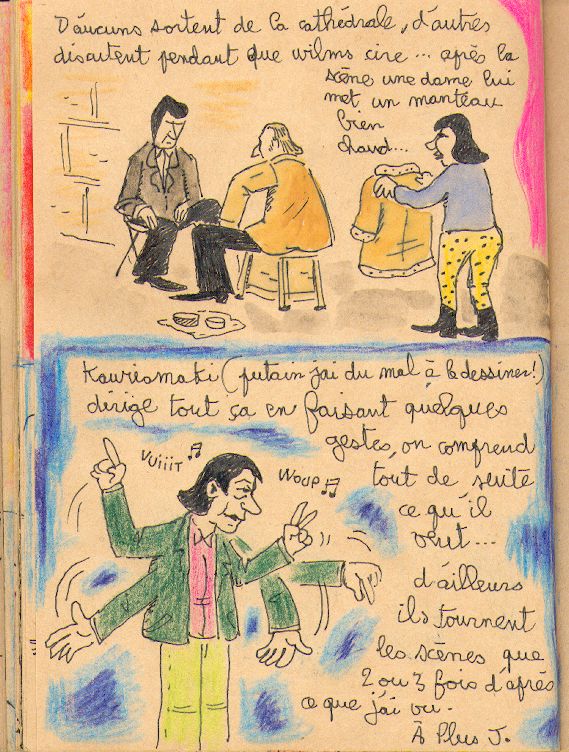 D'aucuns sortent de la cathédrale, d'autres
discutent pendant que wilms cire... après la
scène une dame lui
met un manteau
bien
chaud...
Kauriamaki (putain j'ai du mal à le dessiner!)
dirige tout ça en faisant quelques
gestes, on comprend
VUiiiT
WOUP
tout de suite
ce qu'il
veut...
d'ailleurs
ils tournent
les scènes que
2 ou 3 fois d'après
ce que j'ai vu.
À Plus J.